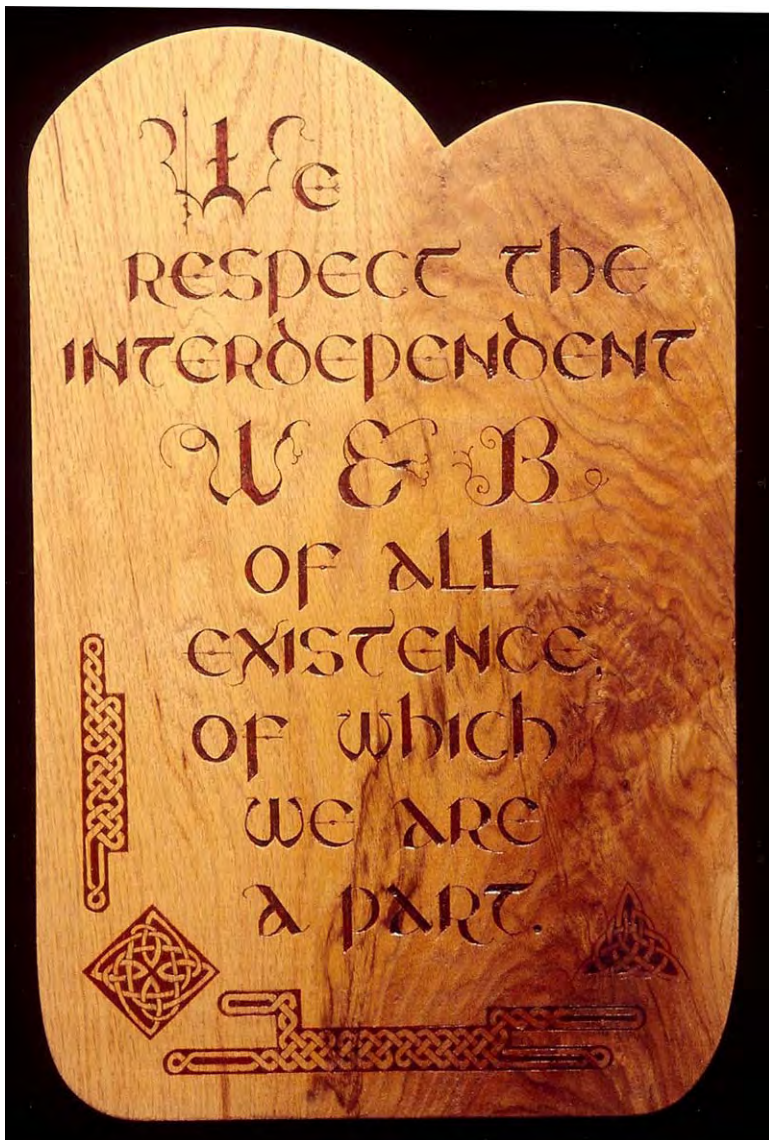 We
respect the
interdependent
WEB
of all
existence,
of which
we are
a part.